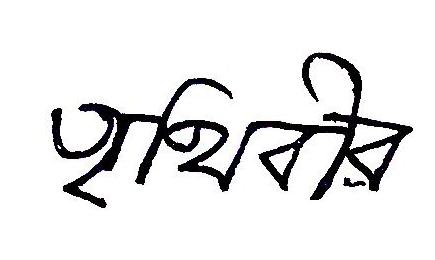 পৃথিবীর